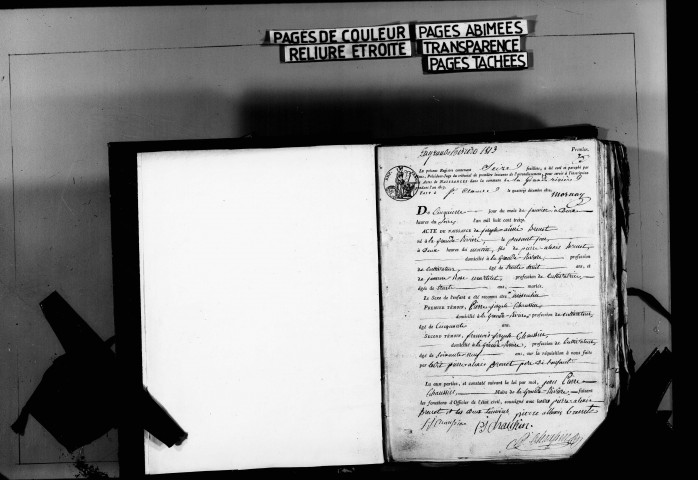 PAGES DE COULEUR PAGES ABIMEES
RELIURE ETROITE TRANSPARENCE
PAGES TACHEES
1813
Premier
Le présent Registre contenant Seize feuillets, a été coté et paraphé par
Président-Juge du tribunal de première instance de l'arrondissement, pour servir à l'inscription
des Actes de NAISSANCES dans la commune de la Grande rivière
pendant l'an 1813.
St Claude le quatorze décembre 1812
Du Cinquième jour du mois de janvier à
heures du Soir l'an mil huit cent treize.
ACTE DE NAISSANCE de joseph Brunet
né à la Grande-Rivière, le présent jour,
à Deux heures du matin, fils de pierre alexis Brunet,
domicilié à la Grande-Rivière, profession
de Cultivateur, âgé de trente huit ans, et
de jeanne profession de Cultivatrice,
âgée de trente ans, mariés.
Le Sexe de l'enfant a été reconnu être Masculin
PREMIER TÉMOIN, Pierre joseph Chaussin
domicilié à la Grande-Rivière, profession de Cultivateur,
âgé de Cinquante ans.
SECOND TÉMOIN, joseph Chaussin,
domicilié à la Grande-Rivière, profession de Cultivateur,
âgé de Soixante neuf ans, sur la réquisition à nous faite
par ledit pierre alexis Brunet père de l'enfant
Lu aux parties, et constaté suivant la loi par moi, jean Pierre
Maire de la Grande-Rivière faisant
les fonctions d'Officier de l'état civil, soussigné avec ledit pierre alexis
Brunet et les deux témoins